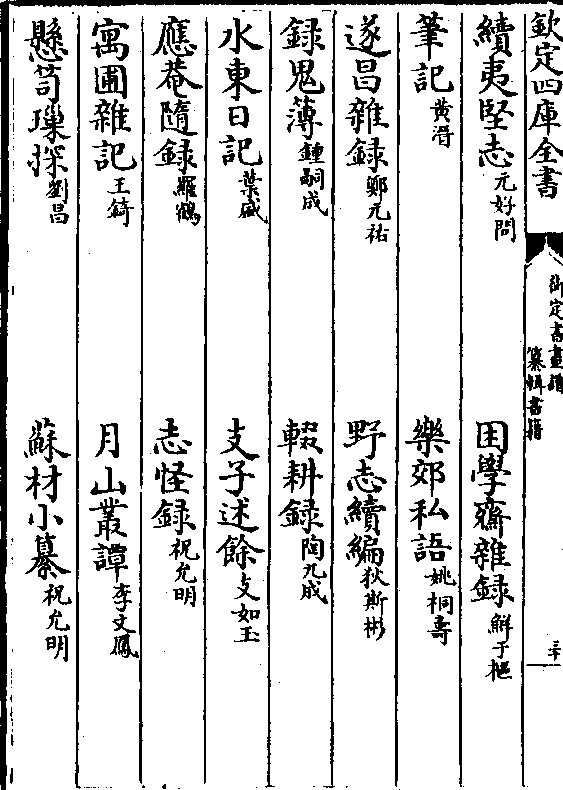 欽定四庫全書
御定書畫譜
纂輯書籍
三十
續夷堅志元好問 困學齋雜録鮮于樞
筆記黄溍 樂郊私語姚桐壽
遂昌雜録鄭元祐 野志續編狄斯彬
録鬼薄鍾嗣成 輟耕録陶九成
水東日記葉盛 支子述餘支如玉
應菴隨録羅鶴 志怪録祝允明
寓圃雜記王錡 月山叢譚李文鳳
懸笥瑣探劉昌 蘇材小纂祝允明